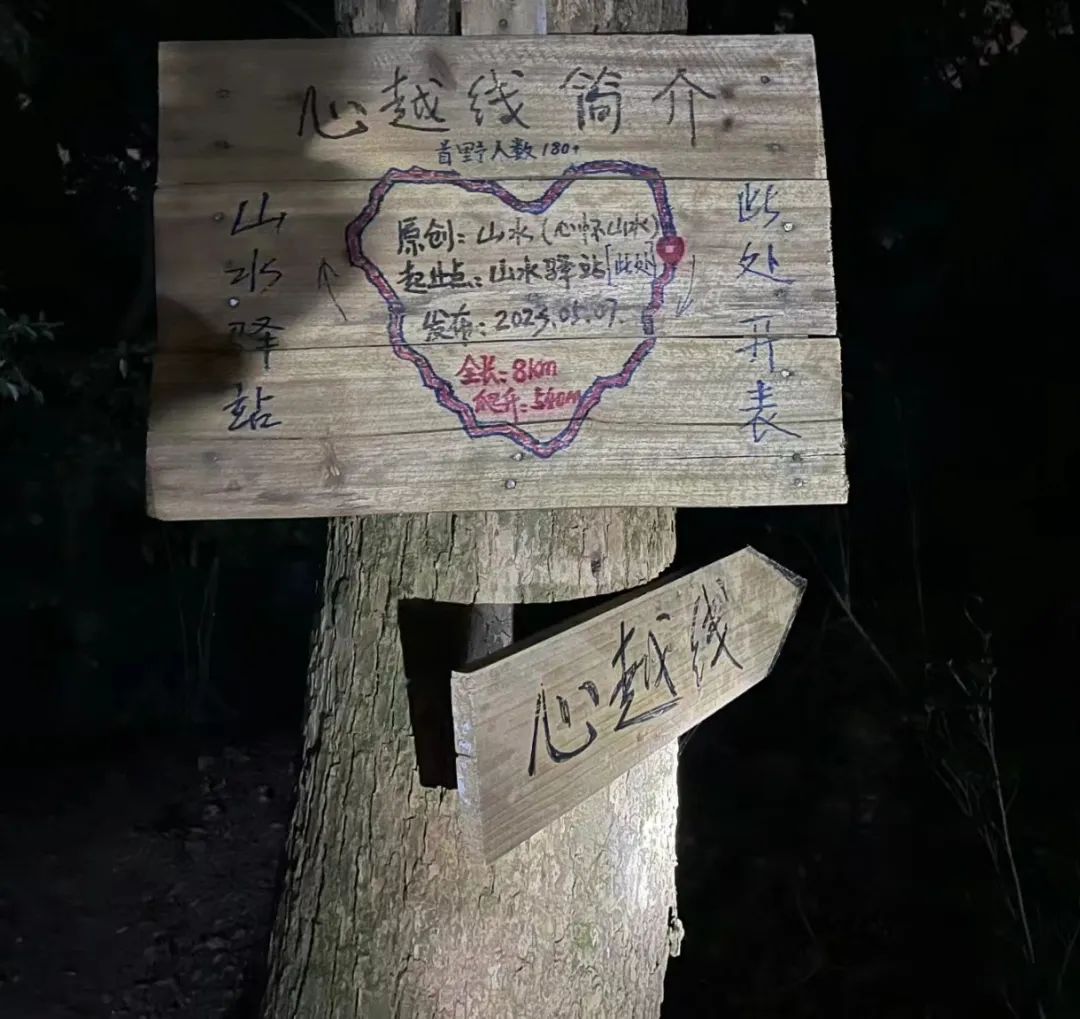 心越线简介
首野人数180+
山水驿站
原创：山水（心怀山水）
起止点：山水驿站[此处]
发布：2025.05.07.
全长：8km
爬升：540m
此处开表
心越线